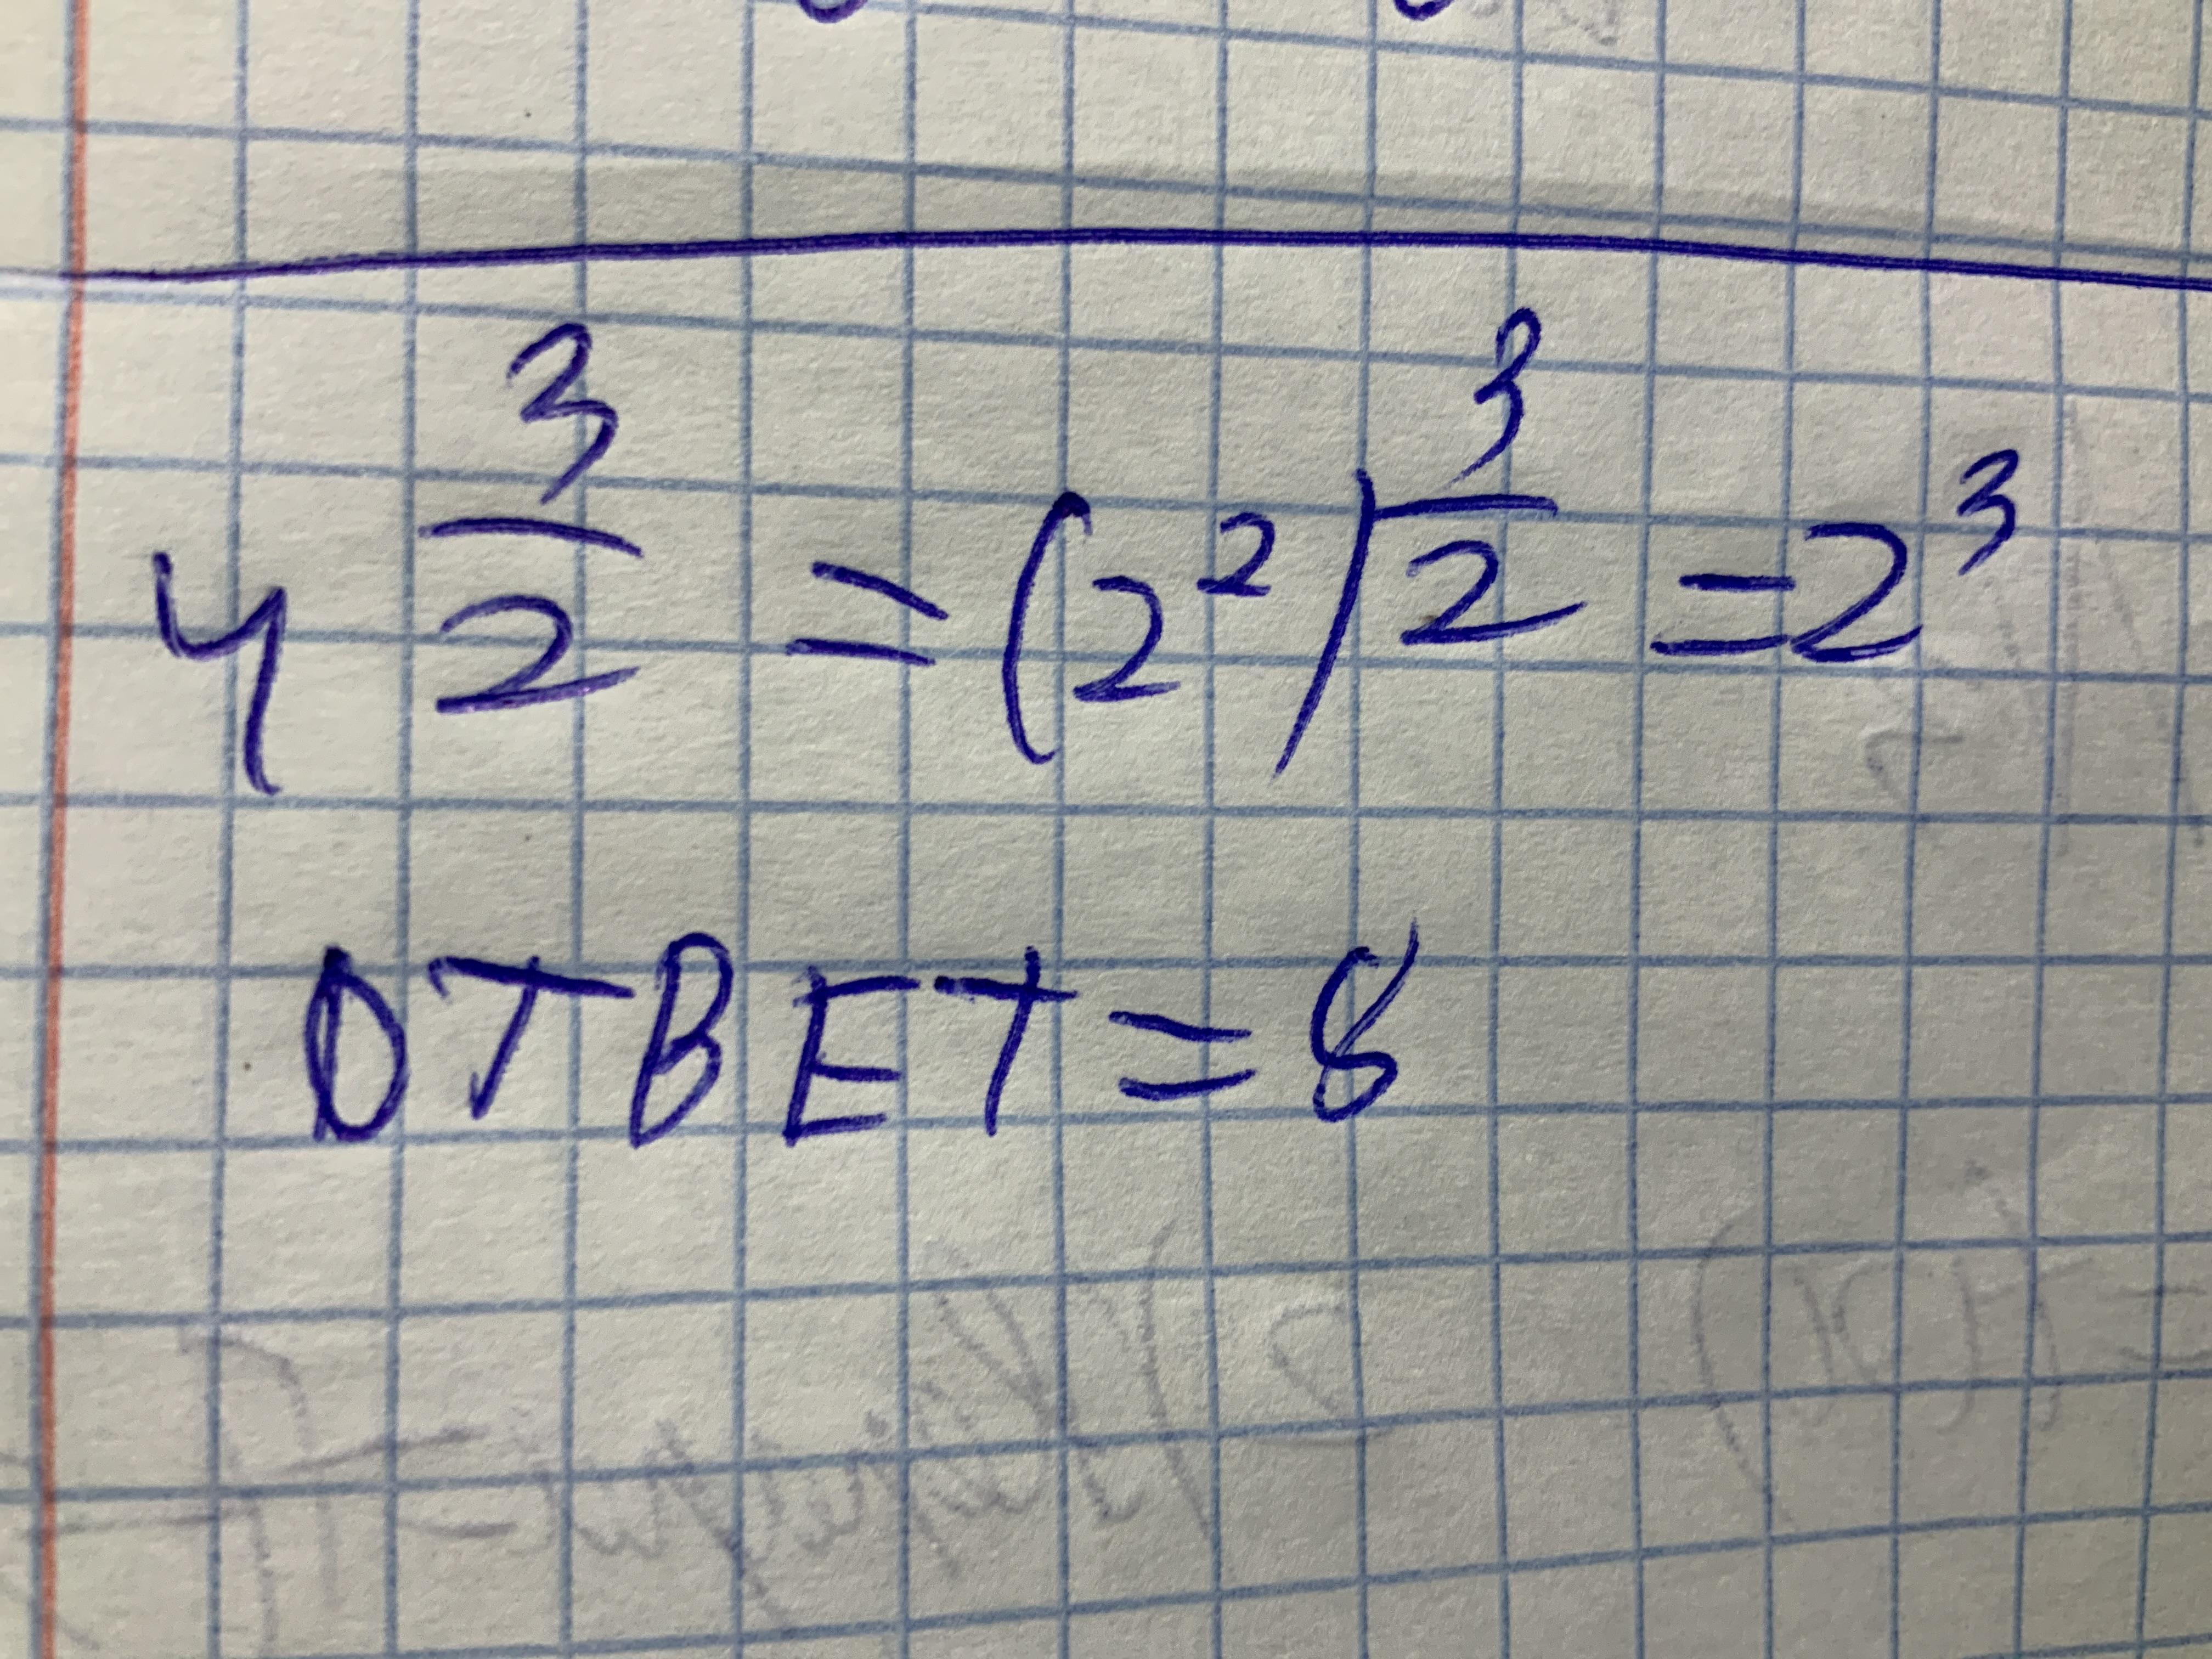 4^{\frac{3}{2}} = (2^2)^{\frac{3}{2}} = 2^3
ОТВЕТ = 8